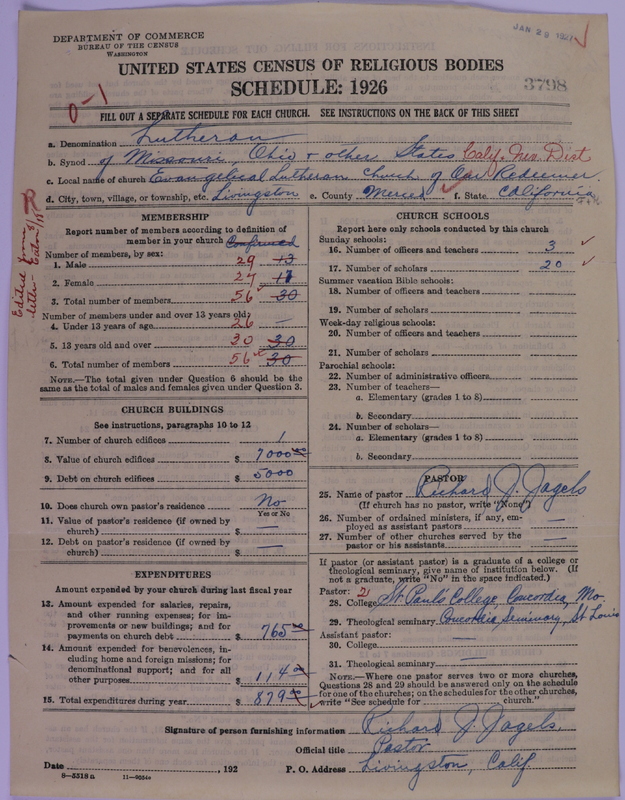 JAN 29 1927
DEPARTMENT OF COMMERCE
BUREAU OF THE CENSUS
WASHINGTON
UNITED STATES CENSUS OF RELIGIOUS BODIES
SCHEDULE: 1926
3798
0-1
FILL OUT A SEPARATE SCHEDULE FOR EACH CHURCH. SEE INSTRUCTIONS ON THE BACK OF THIS SHEET
a. Denomination Lutheran
b. Synod of Missouri, Ohio + other States Calif. Nev. Dist
c. Local name of church Evangelical Lutheran Church of Our Redeemer.
d. City, town, village, or township, etc. Livingston e. County Merced f. State California
Edited from letter
MEMBERSHIP
Report number of members according to definition of
member in your church Confirmed
Number of members, by sex:
1. Male 29 13
2. Female 27 17
3. Total number of members 56 30
Number of members under and over 13 years old:
4. Under 13 years of age 26 —
5. 13 years old and over 30 30
6. Total number of members 56 30
NOTE.—The total given under Question 6 should be
the same as the total of males and females given under Question 3.
CHURCH BUILDINGS
See instructions, paragraphs 10 to 12
7. Number of church edifices 1
8. Value of church edifices $ 7000 00
9. Debt on church edifices $ 5000
10. Does church own pastor's residence? No
Yes or No
11. Value of pastor's residence (if owned by
church) $ —
12. Debt on pastor's residence (if owned by
church) $ —
EXPENDITURES
Amount expended by your church during last fiscal year
13. Amount expended for salaries, repairs,
and other running expenses; for im-
provements or new buildings; and for
payments on church debt $ 765 00
14. Amount expended for benevolences, in-
cluding home and foreign missions; for
denominational support; and for all
other purposes $ 114 00
15. Total expenditures during year $ 879 00
CHURCH SCHOOLS
Report here only schools conducted by this church
Sunday schools:
16. Number of officers and teachers 3
17. Number of scholars 20
Summer vacation Bible schools:
18. Number of officers and teachers
19. Number of scholars
Week-day religious schools:
20. Number of officers and teachers
21. Number of scholars
Parochial schools:
22. Number of administrative officers
23. Number of teachers—
a. Elementary (grades 1 to 8)
b. Secondary
24. Number of scholars—
a. Elementary (grades 1 to 8)
b. Secondary
PASTOR
25. Name of pastor Richard J. Jagels
(If church has no pastor, write "None")
26. Number of ordained ministers, if any, em-
ployed as assistant pastors —
27. Number of other churches served by the
pastor or his assistants —
If pastor (or assistant pastor) is a graduate of a college or
theological seminary, give name of institution below. (If
not a graduate, write "No" in the space indicated.)
Pastor: 2
28. College St. Paul's College, Concordia, Mo.
29. Theological seminary Concordia Seminary, St Louis
Assistant pastor:
30. College —
31. Theological seminary —
NOTE.—Where one pastor serves two or more churches,
Questions 28 and 29 should be answered only on the schedule
for one of the churches; on the schedules for the other churches,
write "See schedule for church."
Signature of person furnishing information Richard J. Jagels
Official title Pastor
Date , 192 P. O. Address Livingston, Calif.
8—5518a